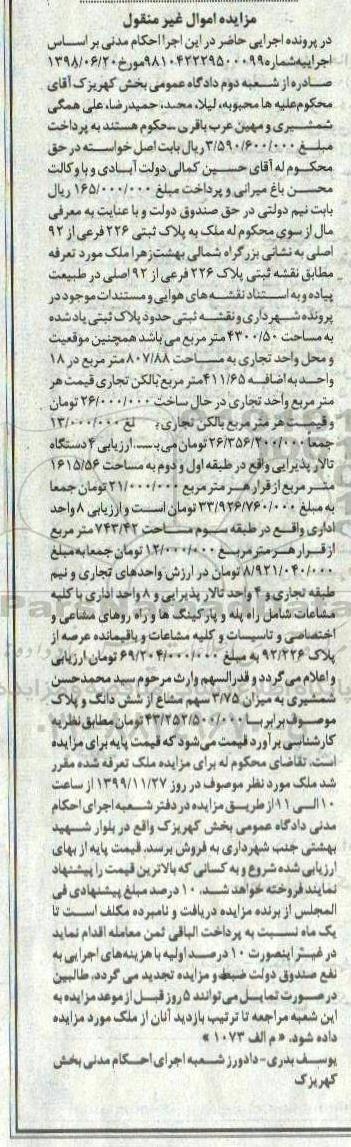 مزایده اموال غیر منقول
در پرونده اجرایی حاضر در این اجرا احکام مدنی بر اساس
اجراییه شماره ۹۸۱۰۴۲۲۲۹۵۰۰۰۹۹ مورخ ۱۳۹۸/۰۶/۲۰
صادره از شعبه دوم دادگاه عمومی بخش کهریزک آقای
محکوم علیه ها محبوبه، لیلا، محمد، حمیدرضا، علی همگی
شمشیری و مهین عرب باقری محکوم هستند به پرداخت
مبلغ ۳/۵۹۰/۶۰۰/۰۰۰ ریال بابت اصل خواسته در حق
محکوم له آقای حسین کمالی دولت آبادی و با وکالت
محسن باغ میرانی و پرداخت مبلغ ۱۶۵/۰۰۰/۰۰۰ ریال
بابت نیم دولتی در حق صندوق دولت و با عنایت به معرفی
مال از سوی محکوم له ملک به پلاک ثبتی ۲۲۶ فرعی از ۹۲
اصلی به نشانی بزرگراه شمالی بهشت زهرا ملک مورد تعرفه
مطابق نقشه ثبتی پلاک ۲۲۶ فرعی از ۹۲ اصلی در طبیعت
پیاده و به استناد نقشه های هوایی و مستندات موجود در
پرونده شهرداری و نقشه ثبتی حدود پلاک ثبتی یاد شده
به مساحت ۴۳۰۰/۵۰ متر مربع می باشد همچنین موقعیت
و محل واحد تجاری به مساحت ۸۰۷/۸۸ متر مربع در ۱۸
واحد به اضافه ۴۱۱/۶۵ متر مربع بالکن تجاری قیمت هر
متر مربع واحد تجاری در حال ساخت ۲۶/۰۰۰/۰۰۰ تومان
و قیمت هر متر مربع بالکن تجاری ۱۳/۰۰۰/۰۰۰
جمعا ۲۶/۳۵۶/۲۰۰/۰۰۰ تومان می باشد. ارزیابی ۴ دستگاه
تالار پذیرایی واقع در طبقه اول و دوم به مساحت ۱۶۱۵/۵۶
متر مربع از قرار هر متر مربع ۲۱/۰۰۰/۰۰۰ تومان جمعا
به مبلغ ۳۳/۹۲۶/۷۶۰/۰۰۰ تومان است و ارزیابی ۸ واحد
اداری واقع در طبقه سوم مساحت ۷۴۳/۴۲ متر مربع
از قرار هر متر مربع ۱۲/۰۰۰/۰۰۰ تومان جمعا به مبلغ
۸/۹۲۱/۰۴۰/۰۰۰ تومان در ارزش واحدهای تجاری و نیم
طبقه تجاری و ۴ واحد تالار پذیرایی و ۸ واحد اداری با کلیه
مشاعات شامل راه پله و پارکینگ ها و راه روهای مشاعی و
اختصاصی و تاسیسات و کلیه مشاعات و باقیمانده عرصه از
پلاک ۹۲/۲۲۶ به مبلغ ۶۹/۲۰۴/۰۰۰/۰۰۰ تومان ارزیابی
و اعلام می گردد و قدرالسهم وارث مرحوم سید محمدحسن
شمشیری به میزان ۳/۷۵ سهم مشاع از شش دانگ و پلاک
موصوف برابر با ۴۳/۲۵۲/۵۰۰/۰۰۰ تومان مطابق نظریه
کارشناسی برآورد قیمت می شود که قیمت پایه برای مزایده
است. تقاضای محکوم له برای مزایده ملک تعرفه شده مقرر
شد ملک مورد نظر موصوف در روز ۱۳۹۹/۱۱/۲۷ از ساعت
۱۰ الی ۱۱ از طریق مزایده در دفتر شعبه اجرای احکام
مدنی دادگاه عمومی بخش کهریزک واقع در بلوار شهید
بهشتی جنب شهرداری به فروش برسد. قیمت پایه از بهای
ارزیابی شده شروع و به کسانی که بالاترین قیمت را پیشنهاد
نمایند فروخته خواهد شد. ۱۰ درصد مبلغ پیشنهادی فی
المجلس از برنده مزایده دریافت و نامبرده مکلف است تا
یک ماه نسبت به پرداخت الباقی ثمن معامله اقدام نماید
در غیر اینصورت ۱۰ درصد اولیه با هزینه های اجرایی به
نفع صندوق دولت ضبط و مزایده تجدید می گردد. طالبین
در صورت تمایل می توانند ۵ روز قبل از موعد مزایده به
این شعبه مراجعه تا ترتیب بازدید آنان از ملک مورد مزایده
داده شود. «م الف ۱۰۷۳»
یوسف بدری - دادورز شعبه اجرای احکام مدنی بخش
کهریزک